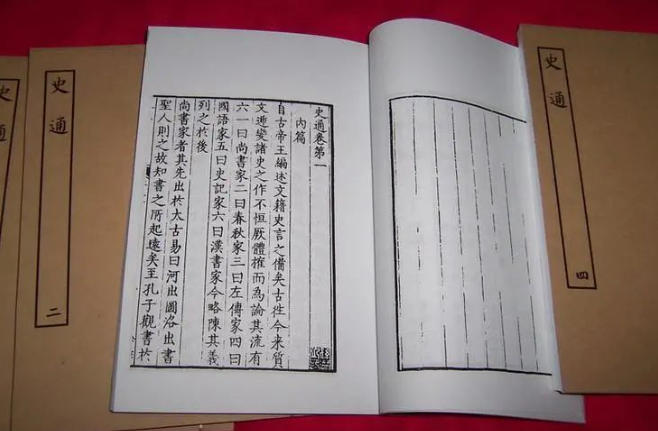 史通
四
史通卷第一
內篇
自古帝王編述文籍史言之備矣古往今来質
文遞變諸史之作不恒厥體搉而為論其流有
六一曰尚書家二曰春秋家三曰左傳家四曰
國語家五曰史記家六曰漢書家今略陳其義
列之扵後
尚書家者其先出扵太古易曰河出圖洛出書
聖人則之故知書之所起遠矣至孔子觀書扵
史通
二
史通